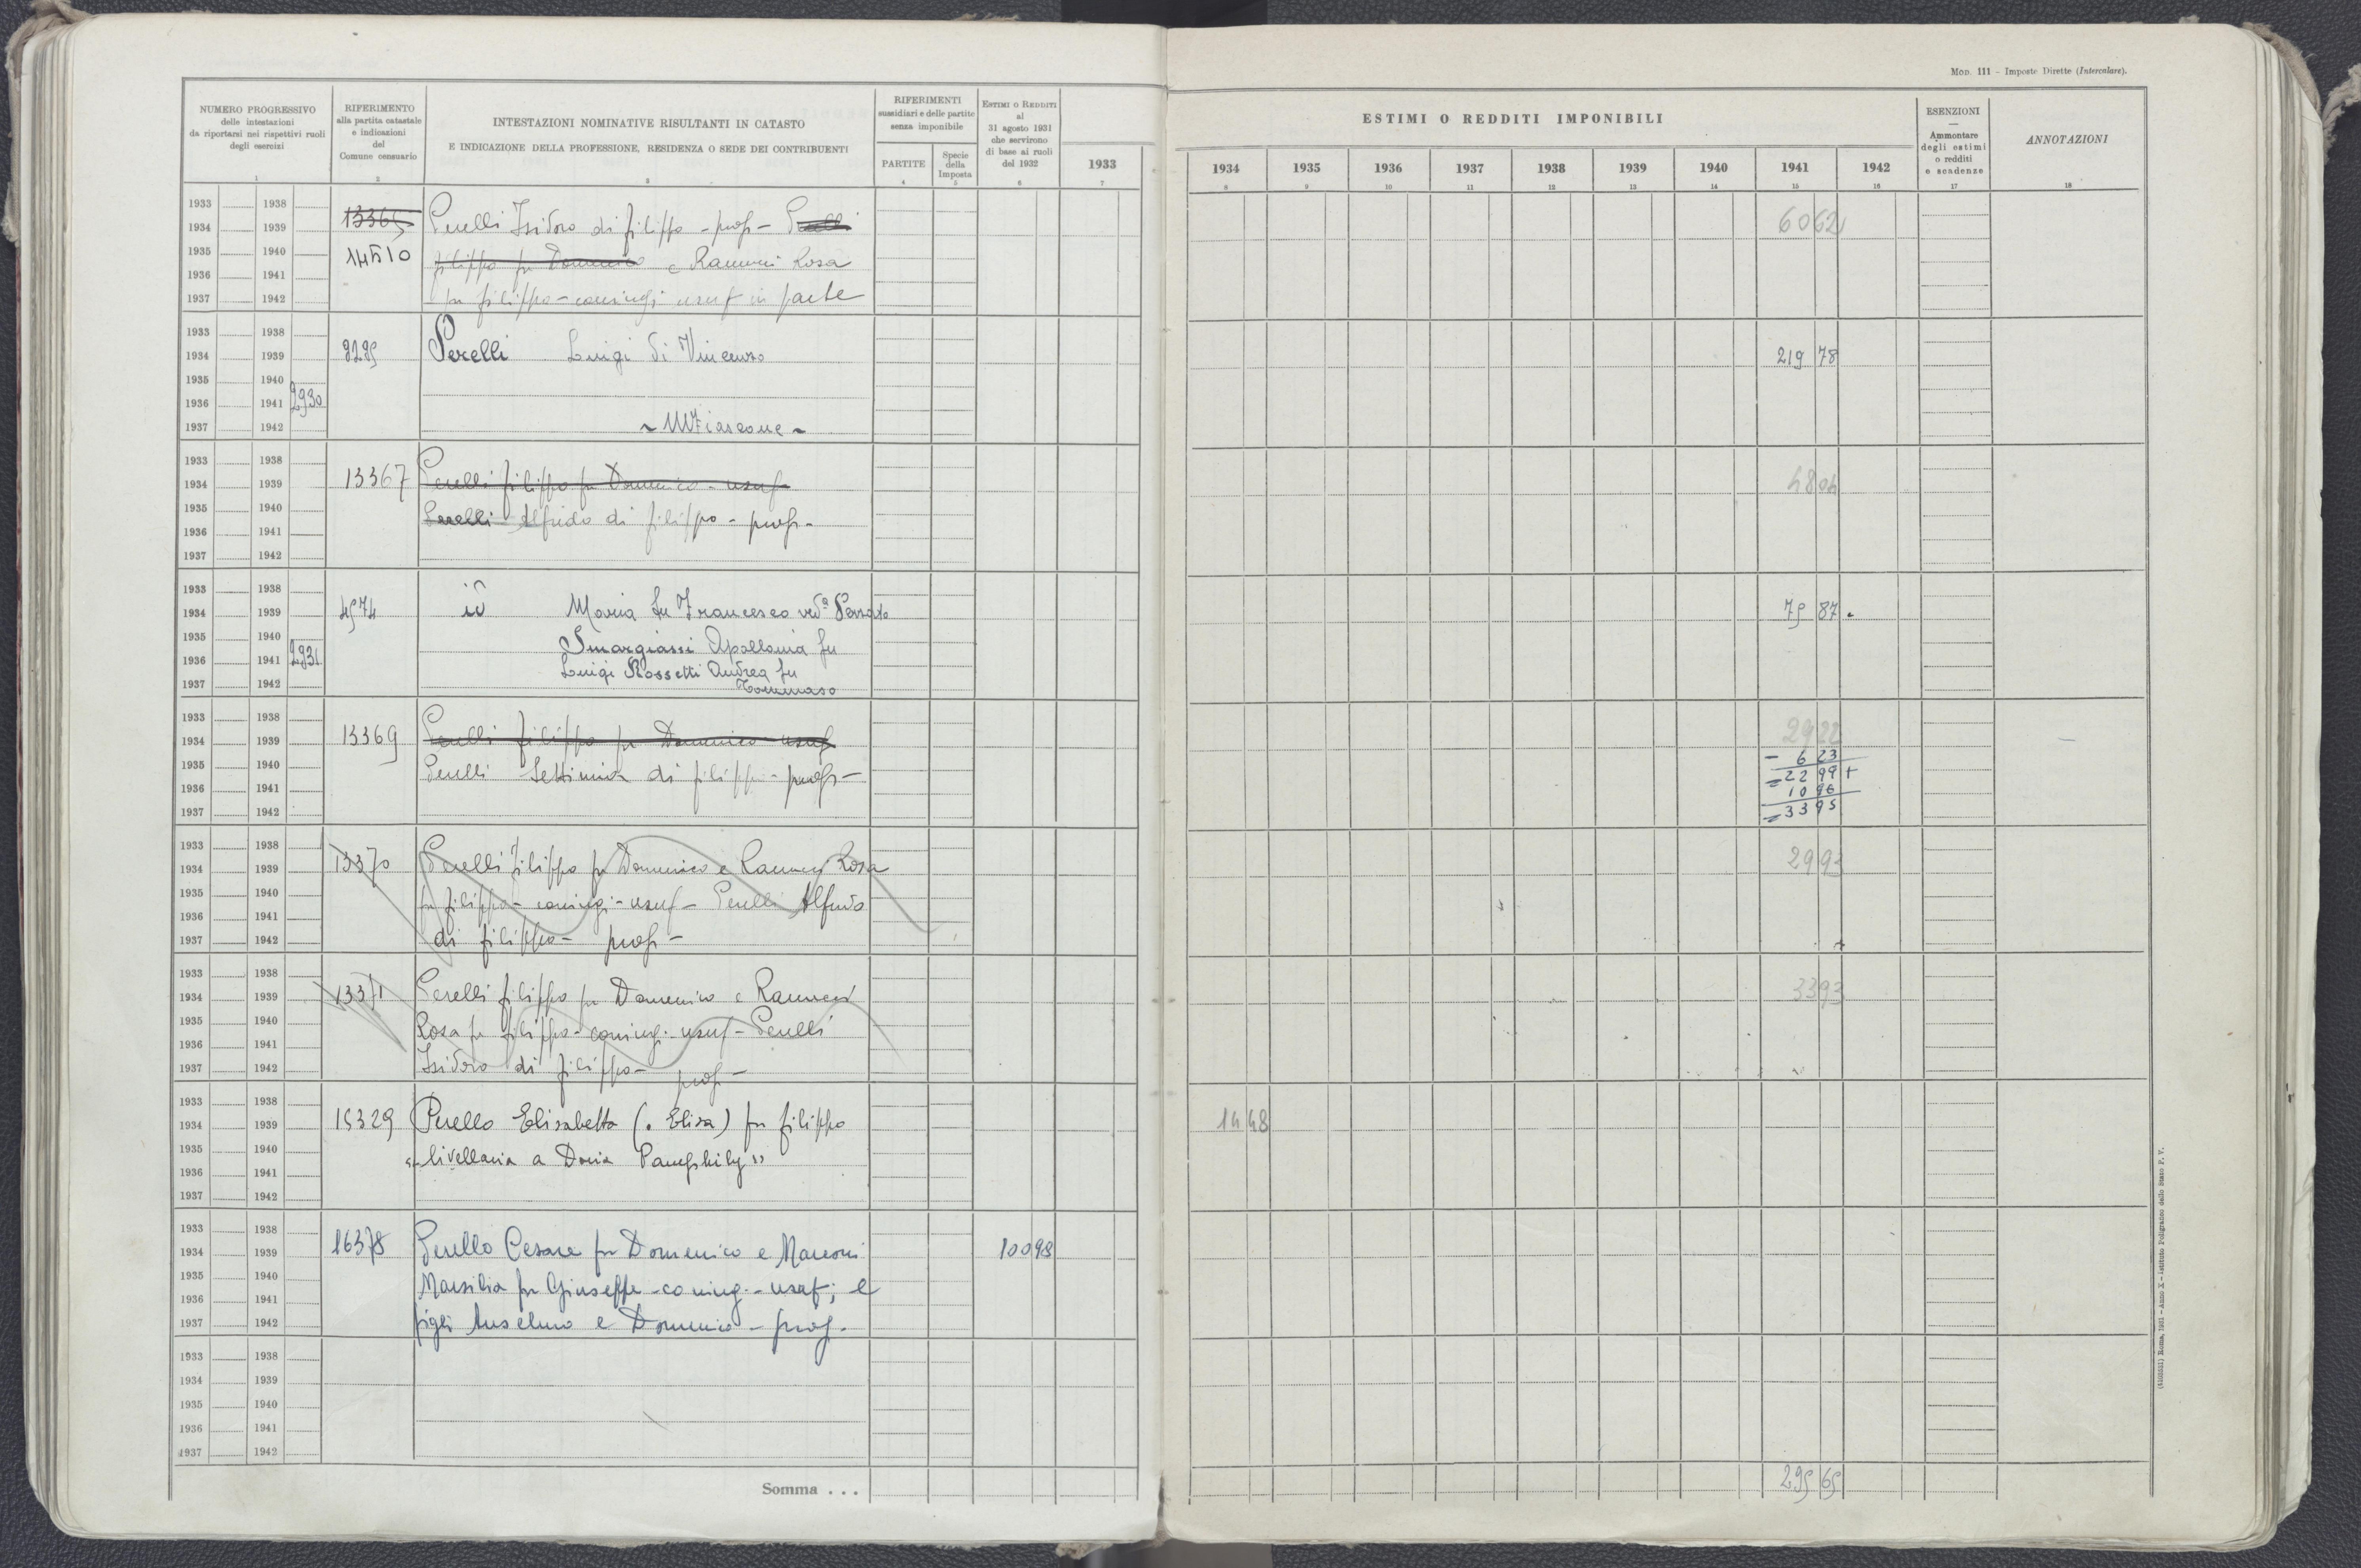 Mod. 111 - Imposte Dirette (Intercalare).
NUMERO PROGRESSIVO
delle intestazioni
da riportarsi nei rispettivi ruoli
degli esercizi
1
RIFERIMENTO
alla partita catastale
e indicazioni
del
Comune censuario
2
INTESTAZIONI NOMINATIVE RISULTANTI IN CATASTO
E INDICAZIONE DELLA PROFESSIONE, RESIDENZA O SEDE DEI CONTRIBUENTI
3
RIFERIMENTI
sussidiari e delle partite
senza imponibile
PARTITE
4
Specie
della
Imposta
5
Estimi o Redditi
al
31 agosto 1931
che servirono
di base ai ruoli
del 1932
6
1933
7
ESTIMI O REDDITI IMPONIBILI
1934 1935 1936 1937 1938 1939 1940 1941 1942
8 9 10 11 12 13 14 15 16
ESENZIONI
—
Ammontare
degli estimi
o redditi
e scadenze
17
ANNOTAZIONI
18
1933 1938
1934 1939 13365 Perelli Isidoro di Filippo - prop - Perelli 60 62
1935 1940 14510 Filippo fu Domenico e Rosa
1936 1941
1937 1942 fu Filippo - coniugi usuf in parte
1933 1938
1934 1939 Perelli Luigi di Vincenzo 219 78
1935 1940
1936 1941 2930
1937 1942 ~ MFiascone ~
1933 1938
1934 1939 13367 Perelli Filippo fu Domenico - usuf 48 04
1935 1940 Perelli Alfredo di Filippo - prop -
1936 1941
1937 1942
1933 1938
1934 1939 4574 id Maria fu Francesco ved.ª 75 87
1935 1940 Smargiassi Apollonia fu
1936 1941 2931 Luigi Rossetti Andrea fu
1937 1942 Tommaso
1933 1938
1934 1939 13369 Perelli Filippo fu Domenico usuf 29 22
1935 1940 Perelli Settimia di Filippo - prop - - 6 23
1936 1941 = 22 99 +
10 96
1937 1942 = 33 95
1933 1938
1934 1939 13370 Perelli Filippo fu Domenico e Rosa 29 93
1935 1940 fu Filippo - coniugi - usuf - Perelli Alfredo
1936 1941
1937 1942 di Filippo - prop -
1933 1938
1934 1939 13371 Perelli Filippo fu Domenico e 33 93
1935 1940 Rosa fu Filippo - coniug. usuf - Perelli
1936 1941
1937 1942 Isidoro di Filippo - prop -
1933 1938
1934 1939 15329 Perello Elisabetta (o Elisa) fu Filippo 14 48
1935 1940 "livellaria a Doria Pamphily"
1936 1941
1937 1942
1933 1938
1934 1939 16378 Perello Cesare fu Domenico e Marconi 100 98
1935 1940 Marsilia fu Giuseppe - coniug. - usuf; e
1936 1941
1937 1942 figli Anselmo e Domenico - prop.
1933 1938
1934 1939
1935 1940
1936 1941
1937 1942
Somma . . . 295 65
Roma, 1931 - Anno X - Istituto Poligrafico dello Stato P. V.